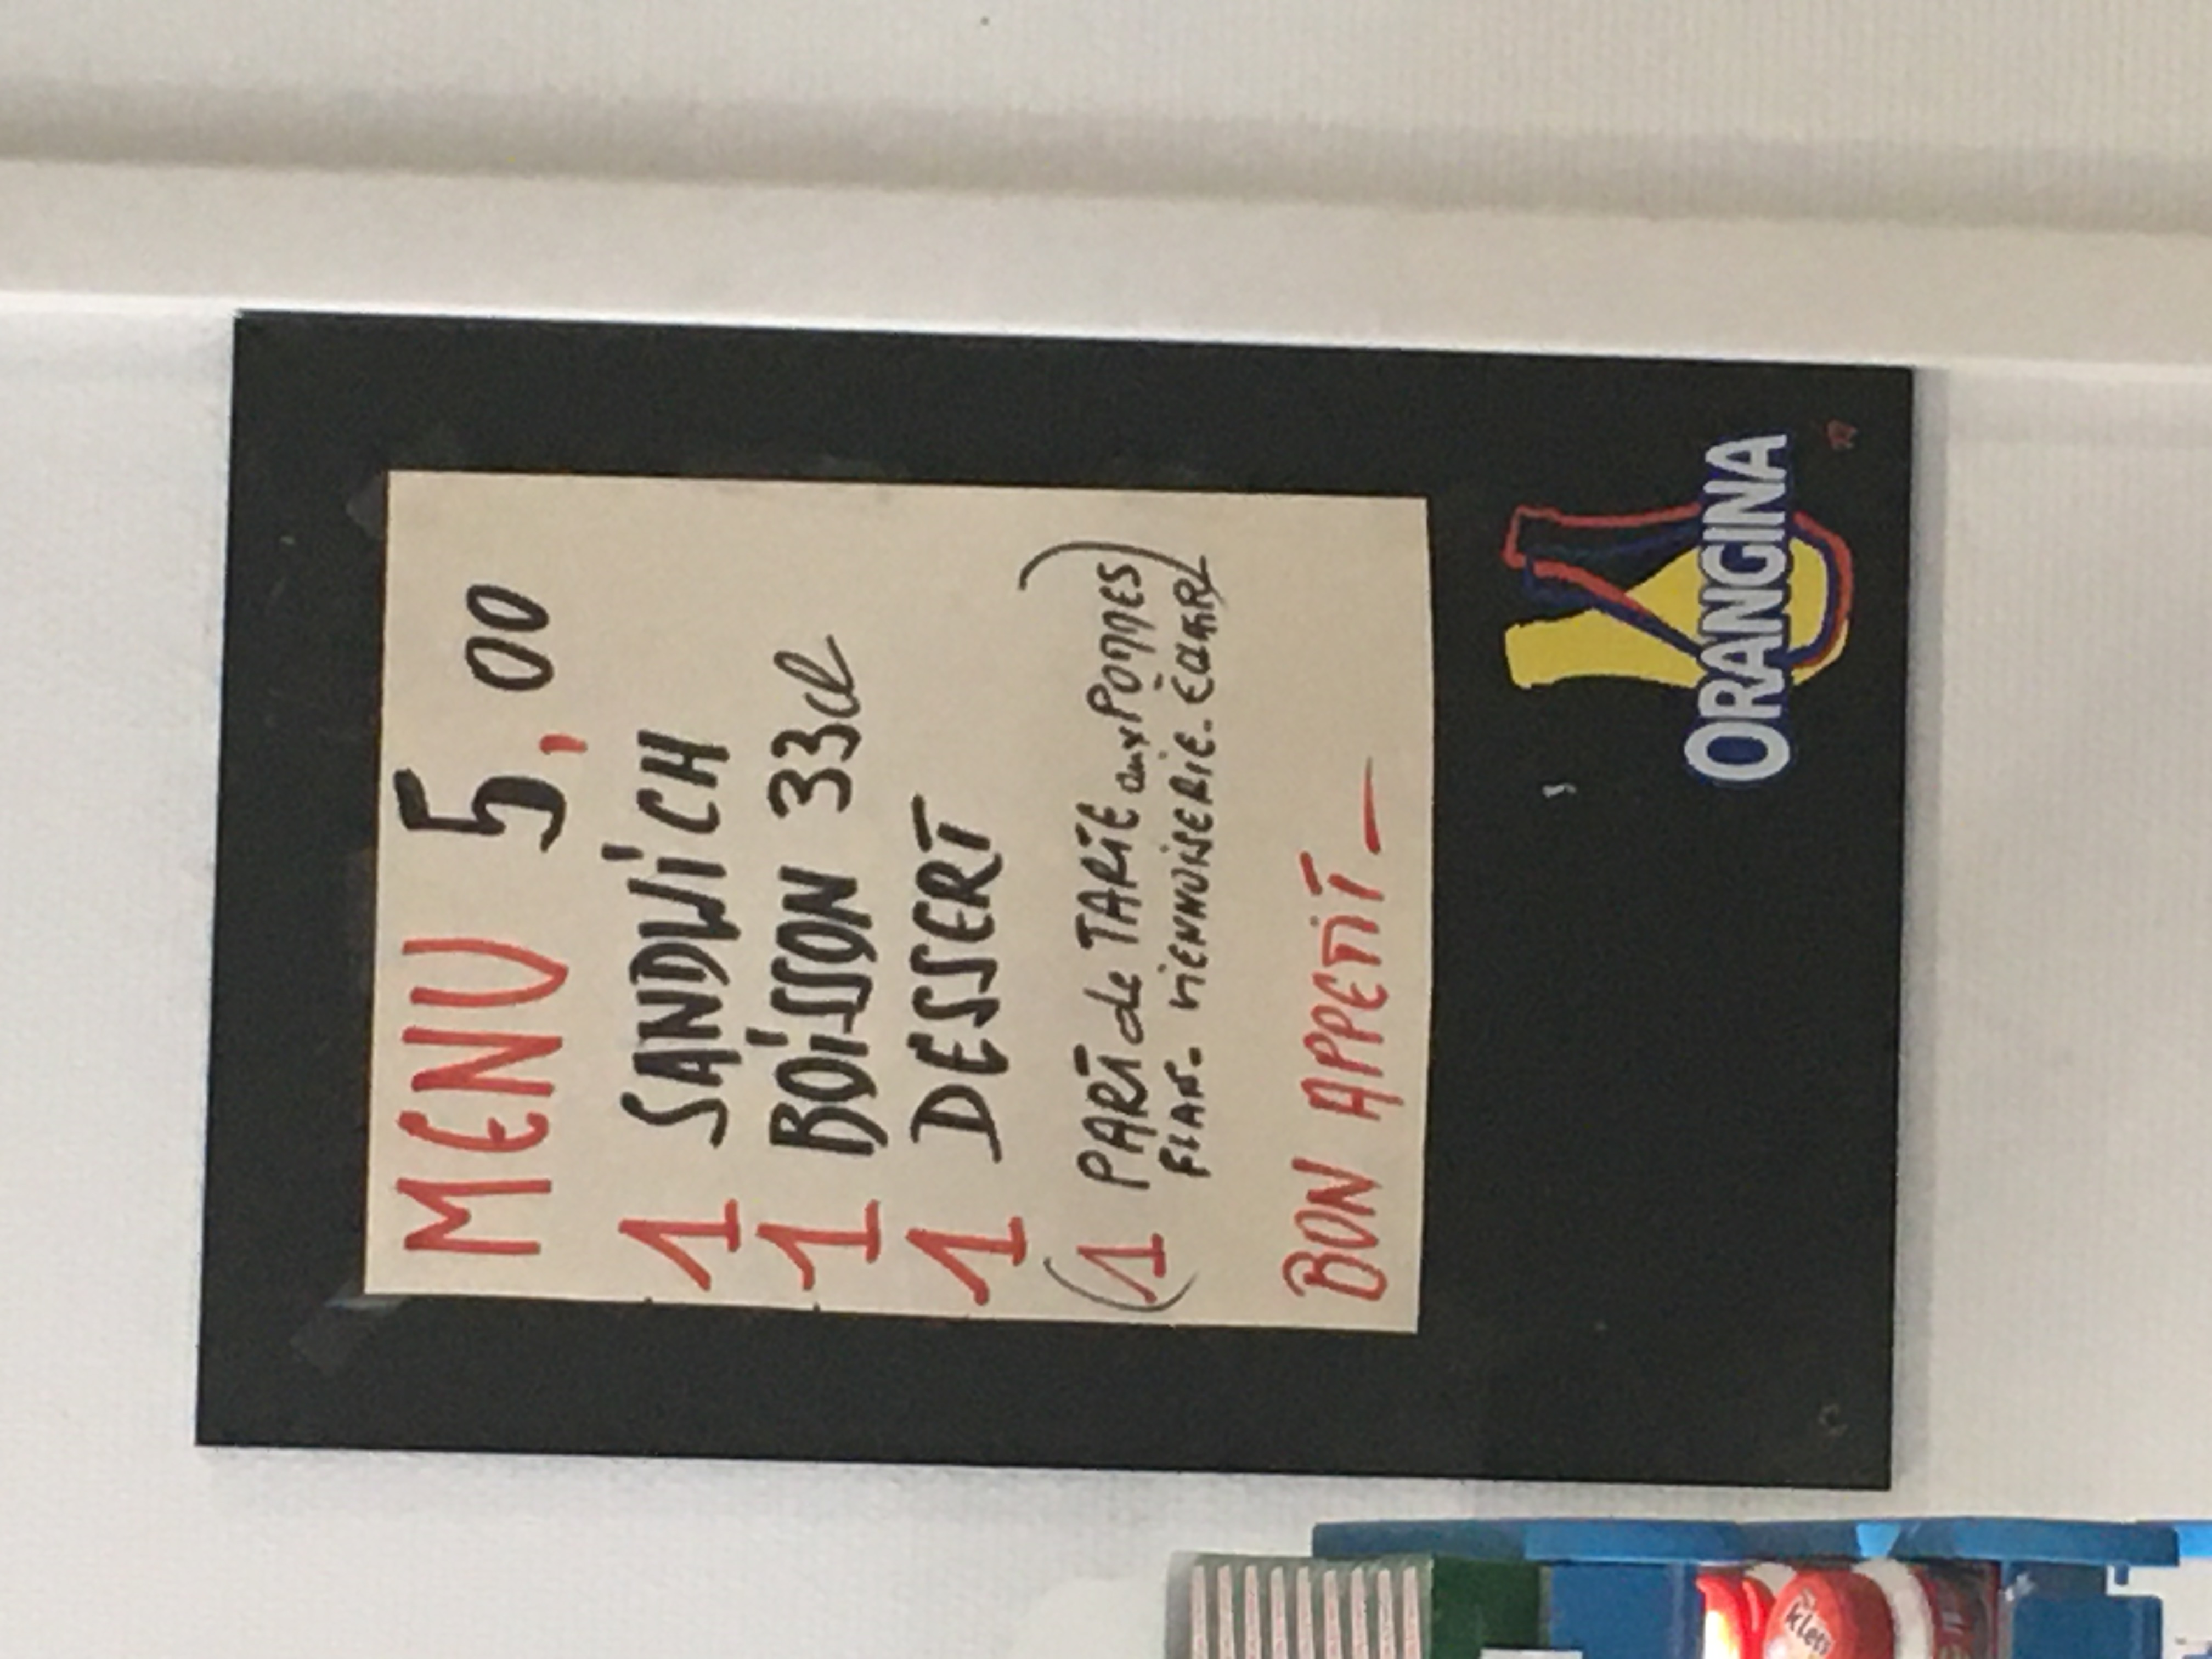 MENU 5,00
1 SANDWiCH
1 BOiSSON 33cl
1 DESSERT
(1 PART de TARTE aux POMMES)
FLAN - ViENNOiSERIE -
BON APPETIT -
ORANGINA